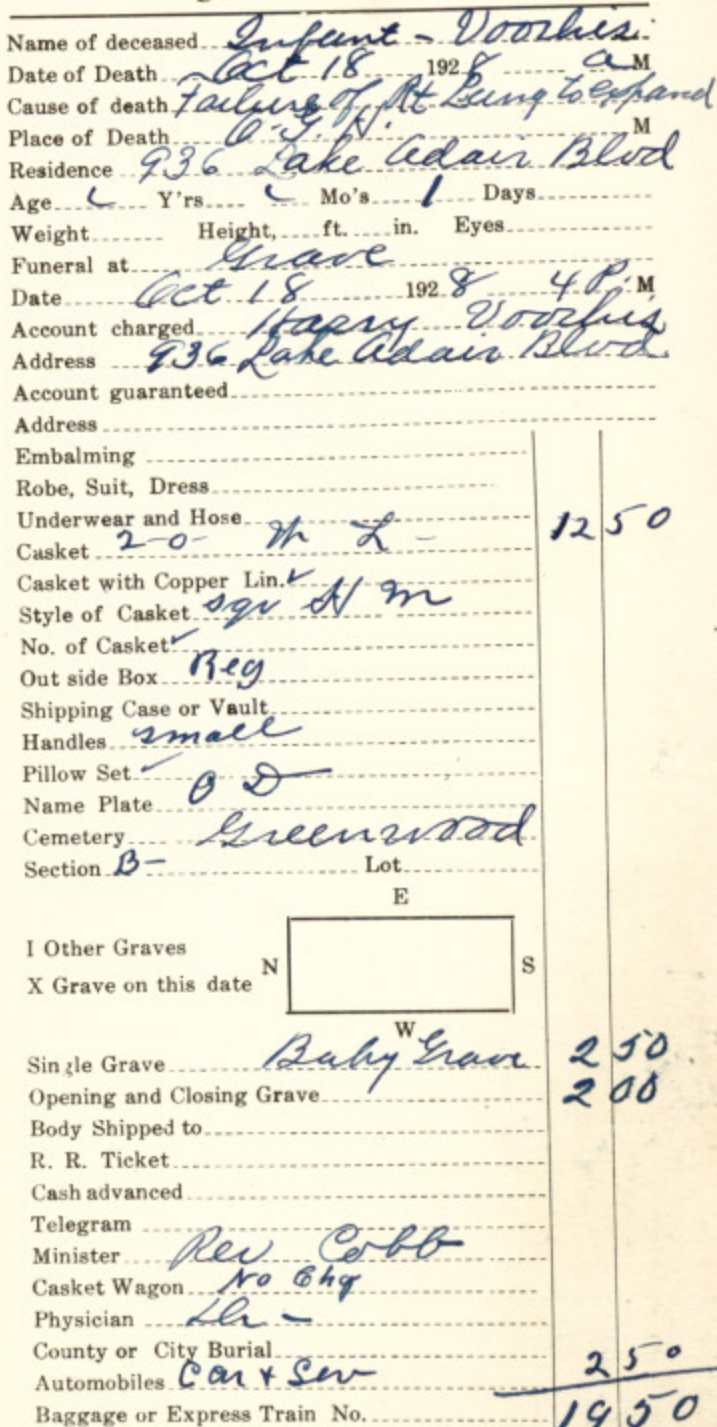 Name of deceased Infant - Voorhis
Date of Death Oct 18 1928 a M
Cause of death Failure of Rt Lung to expand
Place of Death O. G. H. M
Residence 936 Lake Adair Blvd
Age Y'rs Mo's 1 Days
Weight Height, ft. in. Eyes
Funeral at Grave
Date Oct 18 1928 4 P. M
Account charged Harry Voorhis
Address 936 Lake Adair Blvd
Account guaranteed
Address
Embalming
Robe, Suit, Dress
Underwear and Hose 12 50
Casket 2-0-
Casket with Copper Lin. ✓
Style of Casket Sqr
No. of Casket ✓
Out side Box Reg
Shipping Case or Vault
Handles small
Pillow Set ✓
Name Plate O D
Cemetery Greenwood
Section B- Lot
E
I Other Graves
N S
X Grave on this date
W
Single Grave Baby Grave 2 50
Opening and Closing Grave 2 00
Body Shipped to
R. R. Ticket
Cash advanced
Telegram
Minister Rev Cobb
Casket Wagon No Chg
Physician Dr -
County or City Burial
Automobiles Car & Serv 2 50
Baggage or Express Train No. 19 50